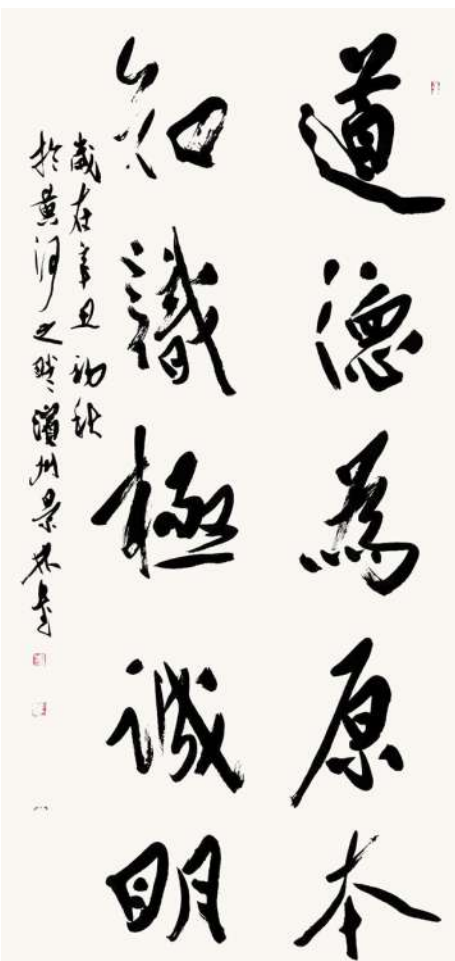 道德為原本
知識極誠明
歲在辛丑初秋
於黃河之畔濱州景林書